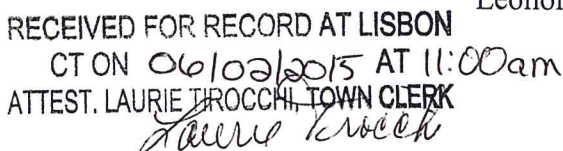 Leonor
RECEIVED FOR RECORD AT LISBON
CT ON 06/02/2015 AT 11:00am
ATTEST. LAURIE TIROCCHI, TOWN CLERK
Laurie Tirocchi